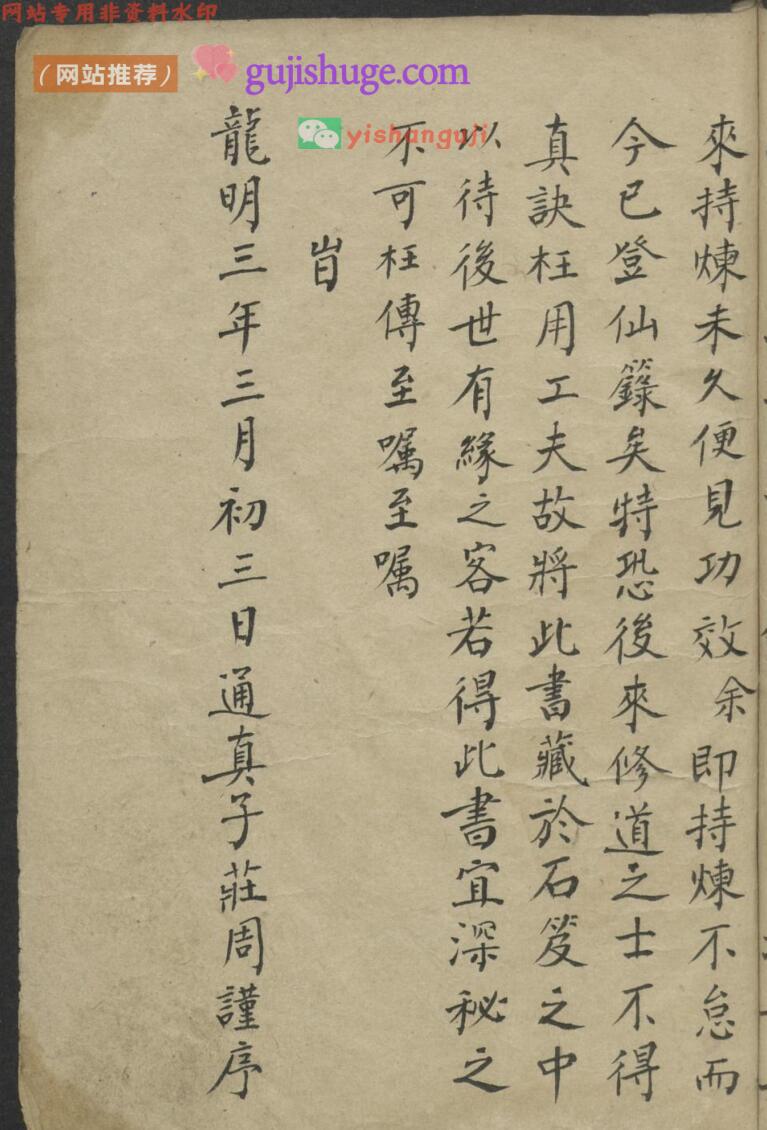 网站专用非资料水印
（网站推荐）
gujishuge.com
yishanguji
來持煉未久便見功效余即持煉不怠而
今已登仙籙矣特恐後來修道之士不得
真訣枉用工夫故將此書藏於石笈之中
以待後世有緣之客若得此書宜深秘之
不可枉傳至嘱至嘱
旹
龍明三年三月初三日通真子莊周謹序